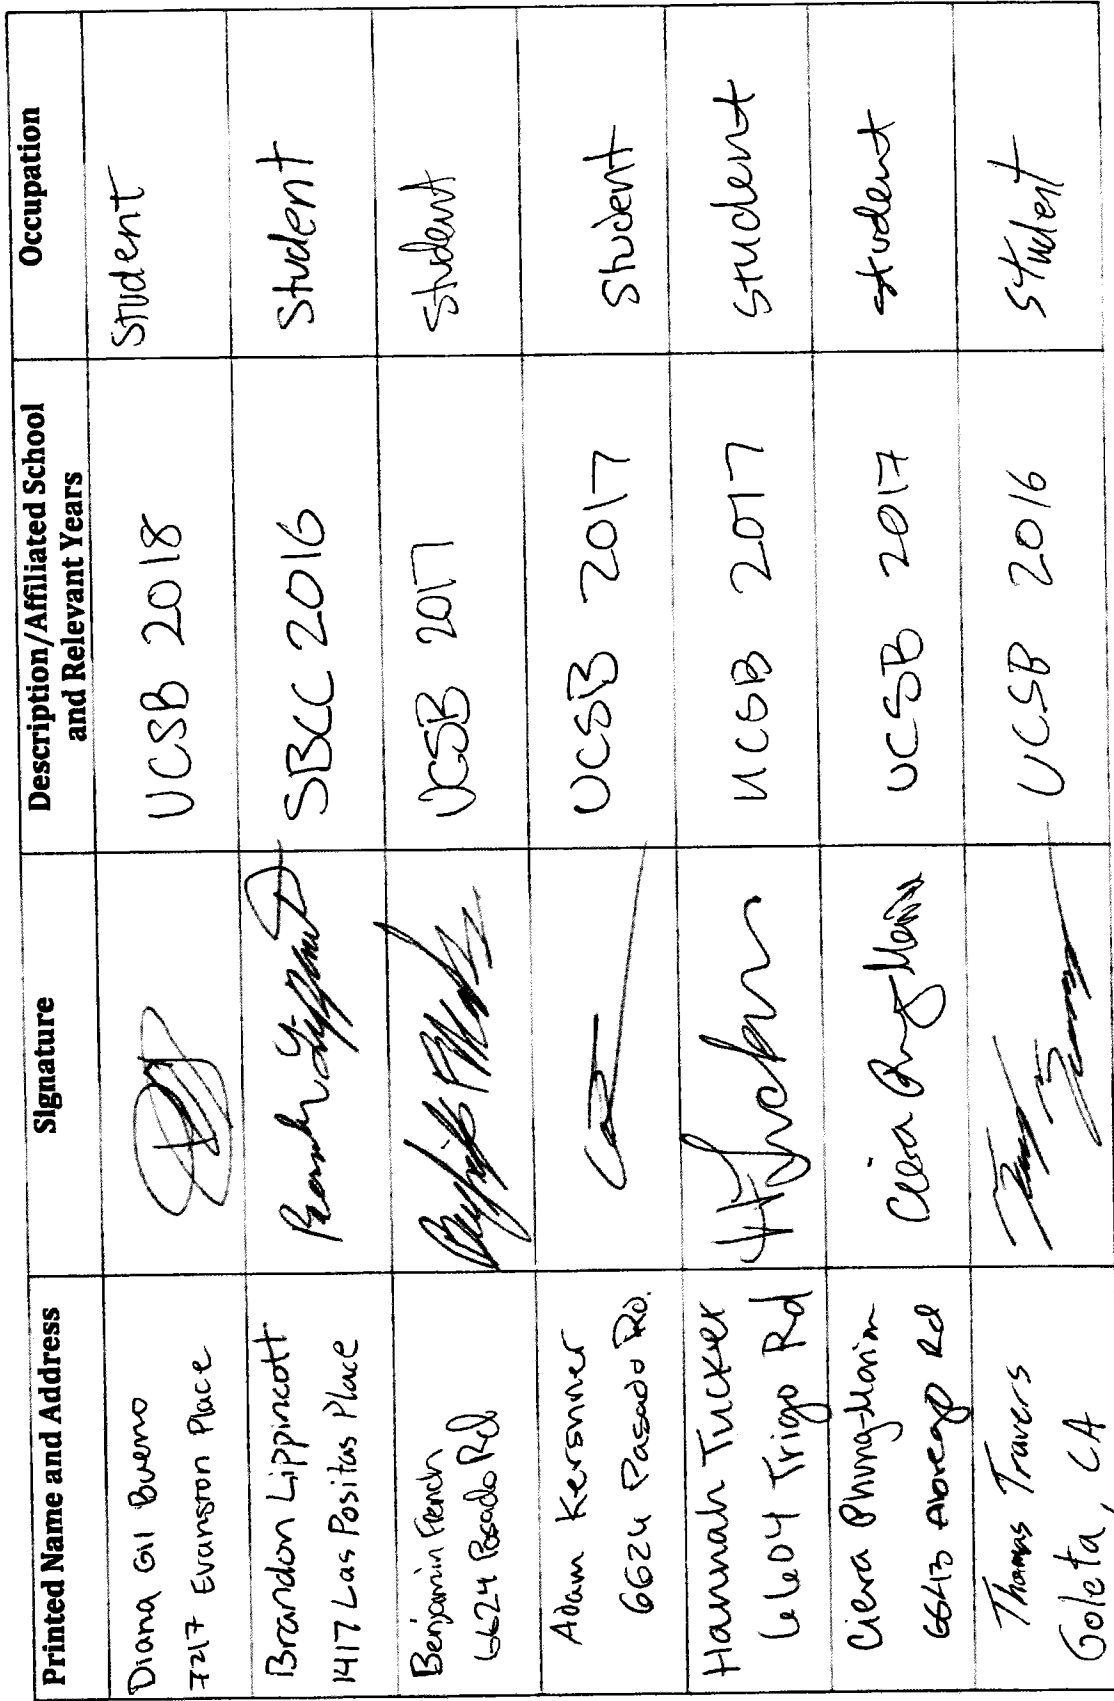 Printed Name and Address
Signature
Description/Affiliated School
and Relevant Years
Occupation
Diana Gil Bueno
7217 Evanston Place
UCSB 2018
Student
Brandon Lippincott
1417 Las Positas Place
SBCC 2016
Student
Benjamin French
6624 Pasado Rd
UCSB 2017
Student
Adam Kersnner
6624 Pasado Rd.
UCSB 2017
Student
Hannah Tucker
6604 Trigo Rd
HTucker
UCSB 2017
Student
Ciera Phung-Marion
6643 Abrego Rd
UCSB 2017
Student
Thomas Travers
Goleta, CA
UCSB 2016
Student